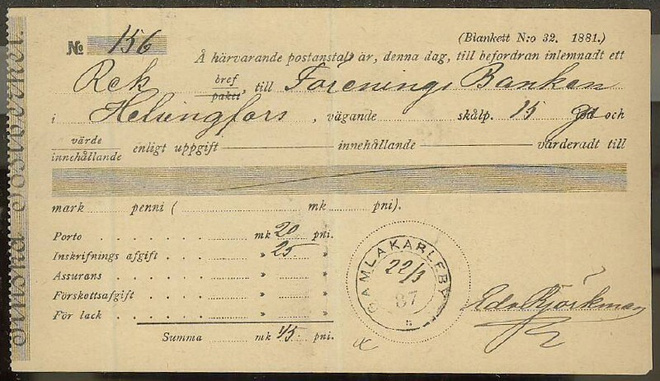 (Blankett N:o 32. 1881.)
№ 156
Å härvarande postanstalt är, denna dag, till befordran inlemnadt ett
Rek bref/paket, till Förenings Banken
i Helsingfors, vägande skålp. 15 och
värde/innehållande enligt uppgift innehållande värderadt till
mark penni ( mk pni).
Porto mk 20 pni.
Inskrifnings afgift " 25 "
Assurans " "
Förskottsafgift " "
För lack " "
Summa mk pni.
GAMLAKARLEBY
22/3
87